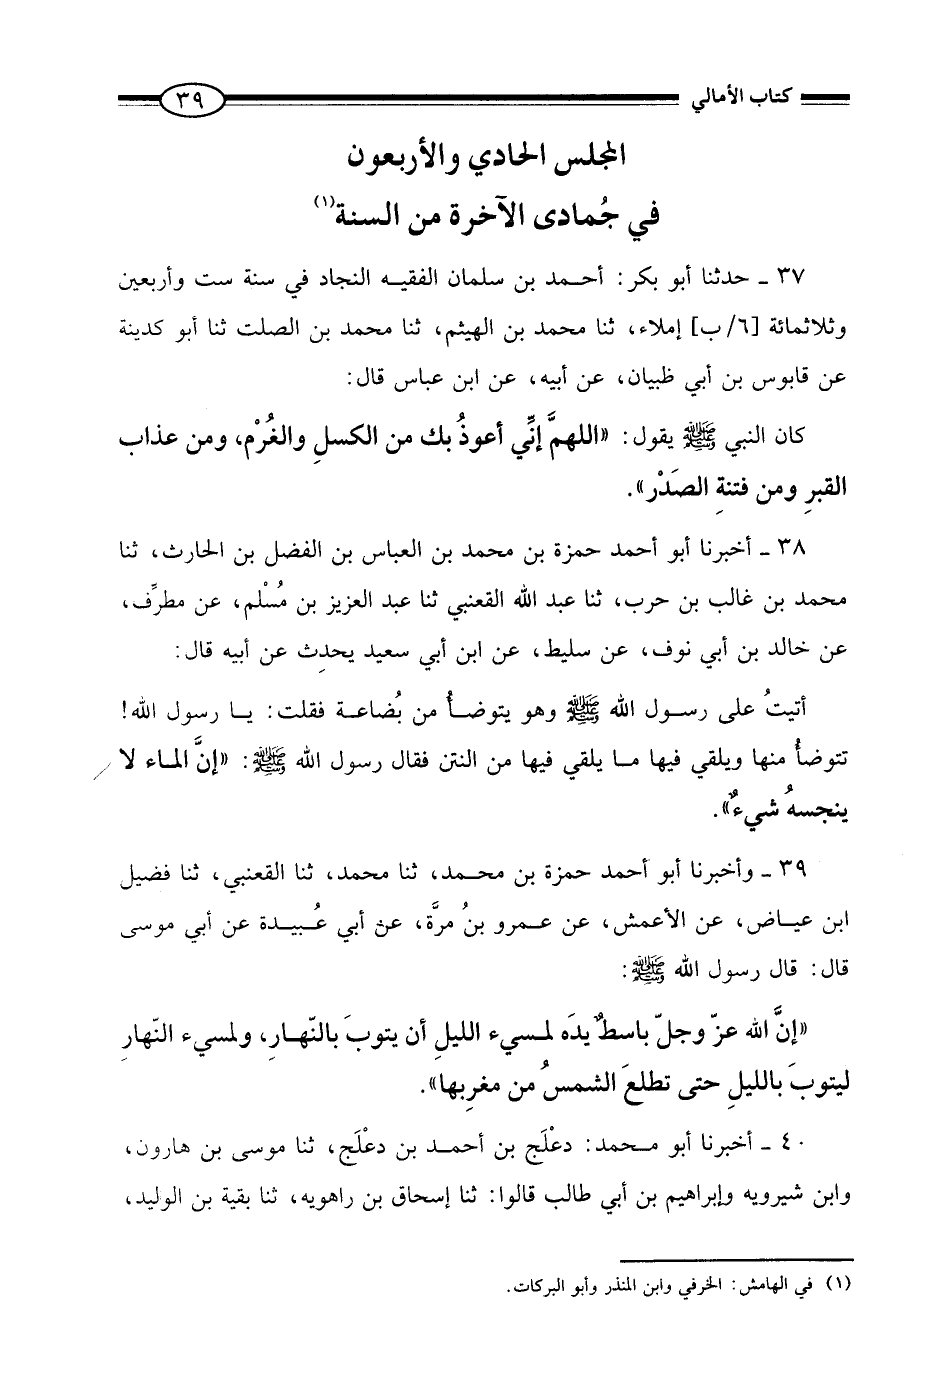 كتاب الأمالي ٣٩
المجلس الحادي والأربعون
في جُمادى الآخرة من السنة(١)
٣٧ ـ حدثنا أبو بكر: أحمد بن سلمان الفقيه النجاد في سنة ست وأربعين
وثلاثمائة [٦/ب] إملاء، ثنا محمد بن الهيثم، ثنا محمد بن الصلت ثنا أبو كدينة
عن قابوس بن أبي ظبيان، عن أبيه، عن ابن عباس قال:
كان النبي ﷺ يقول: «اللهمَّ إنِّي أعوذُ بك من الكسلِ والغُرْم، ومن عذاب
القبرِ ومن فتنةِ الصَدْر».
٣٨ ـ أخبرنا أبو أحمد حمزة بن محمد بن العباس بن الفضل بن الحارث، ثنا
محمد بن غالب بن حرب، ثنا عبد الله القعنبي ثنا عبد العزيز بن مُسْلم، عن مطرِّف،
عن خالد بن أبي نوف، عن سليط، عن ابن أبي سعيد يحدث عن أبيه قال:
أتيتُ على رسول الله ﷺ وهو يتوضأُ من بُضاعة فقلت: يا رسول الله!
تتوضأُ منها ويلقي فيها ما يلقي فيها من النتن فقال رسول الله ﷺ: «إنَّ الماء لا
ينجسهُ شيءٌ».
٣٩ ـ وأخبرنا أبو أحمد حمزة بن محمد، ثنا محمد، ثنا القعنبي، ثنا فضيل
ابن عياض، عن الأعمش، عن عمرو بنُ مرَّة، عن أبي عُبيدة عن أبي موسى
قال: قال رسول الله ﷺ:
«إنَّ الله عزّ وجلّ باسطٌ يدَه لمسيء الليلِ أن يتوبَ بالنّهارِ، ولمسيء النّهارِ
ليتوبَ بالليلِ حتى تطلعَ الشمسُ من مغرِبها».
٤٠ ـ أخبرنا أبو محمد: دعْلَج بن أحمد بن دعْلَج، ثنا موسى بن هارون،
وابن شيرويه وإبراهيم بن أبي طالب قالوا: ثنا إسحاق بن راهويه، ثنا بقية بن الوليد،
(١) في الهامش: الخرفي وابن المنذر وأبو البركات.